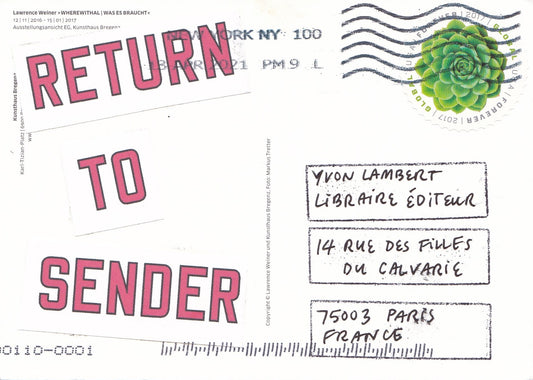 Lawrence Weiner »WHEREWITHAL | WAS ES BRAUCHT«
12 | 11 | 2016 – 15 | 01 | 2017
Ausstellungsansicht EG, Kunsthaus Bregenz
NEW YORK NY 100
13 APR 2021 PM 9 L
FOREVER | 2017 | GLOBAL USA | FOREVER | 2017 | GLOBAL
RETURN
TO
SENDER
Kunsthaus Bregenz
Karl-Tizian-Platz |
Copyright © Lawrence Weiner und Kunsthaus Bregenz, Foto: Markus Tretter
YVON LAMBERT
LIBRAIRE ÉDITEUR
14 RUE DES FILLES
DU CALVARIE
75003 PARIS
FRANCE
00110-0001